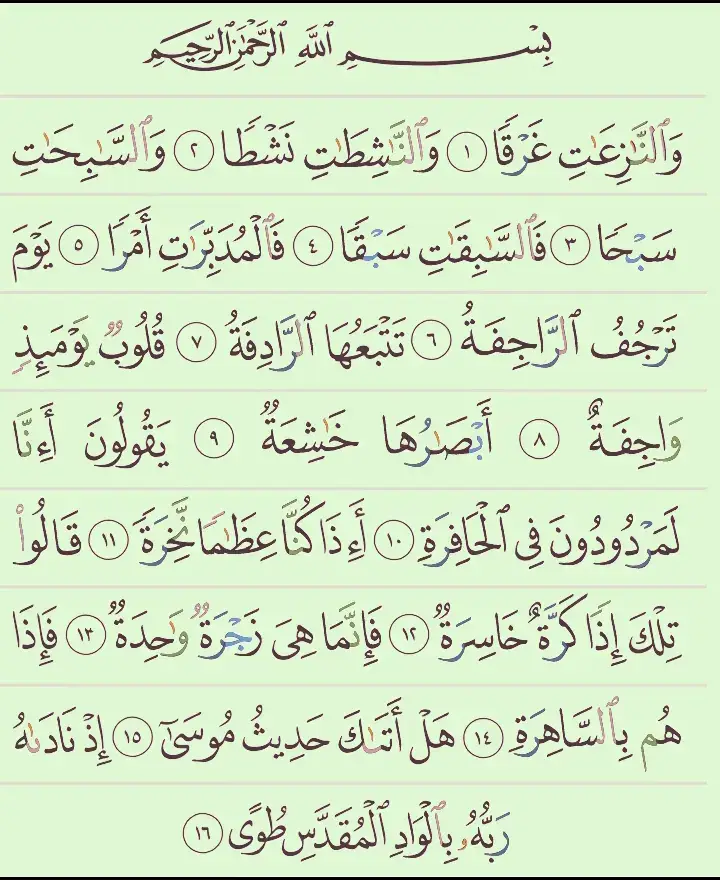 بِسْمِ ٱللَّهِ ٱلرَّحْمَٰنِ ٱلرَّحِيمِ
وَٱلنَّٰزِعَٰتِ غَرْقًا ١ وَٱلنَّٰشِطَٰتِ نَشْطًا ٢ وَٱلسَّٰبِحَٰتِ
سَبْحًا ٣ فَٱلسَّٰبِقَٰتِ سَبْقًا ٤ فَٱلْمُدَبِّرَٰتِ أَمْرًا ٥ يَوْمَ
تَرْجُفُ ٱلرَّاجِفَةُ ٦ تَتْبَعُهَا ٱلرَّادِفَةُ ٧ قُلُوبٌ يَوْمَئِذٍ
وَاجِفَةٌ ٨ أَبْصَٰرُهَا خَٰشِعَةٌ ٩ يَقُولُونَ أَءِنَّا
لَمَرْدُودُونَ فِى ٱلْحَافِرَةِ ١٠ أَءِذَا كُنَّا عِظَٰمًا نَّخِرَةً ١١ قَالُوا۟
تِلْكَ إِذًا كَرَّةٌ خَاسِرَةٌ ١٢ فَإِنَّمَا هِىَ زَجْرَةٌ وَٰحِدَةٌ ١٣ فَإِذَا
هُم بِٱلسَّاهِرَةِ ١٤ هَلْ أَتَىٰكَ حَدِيثُ مُوسَىٰٓ ١٥ إِذْ نَادَىٰهُ
رَبُّهُۥ بِٱلْوَادِ ٱلْمُقَدَّسِ طُوًى ١٦